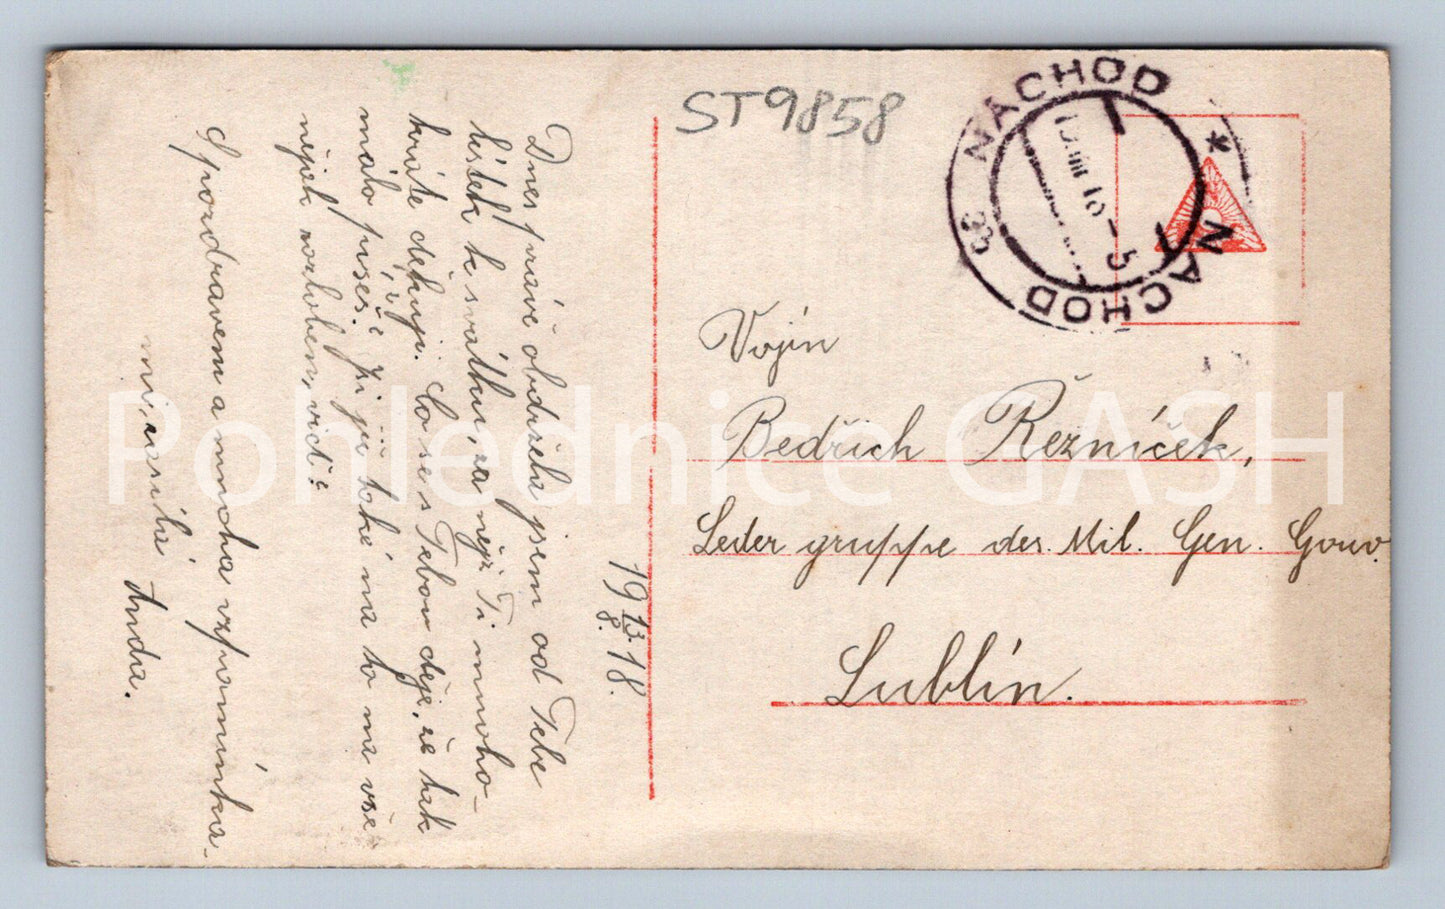 ST9858
NÁCHOD * NACHOD
19 13/8. 18.
Dnes právě obdržela jsem od Tebe
lístek k svátku, za nějž Ti mnoho-
kráte děkuji. Co se s Tebou děje, že tak
málo píšeš?
nějak rozloben, viď?
S pozdravem a mnoha vzpomínka-
mi,
Anda.
Vojín
Bedřich Řezníček,
Leder gruppe des. Mil. Gen. Gouv.
Lublín.
Pohlednice GASH